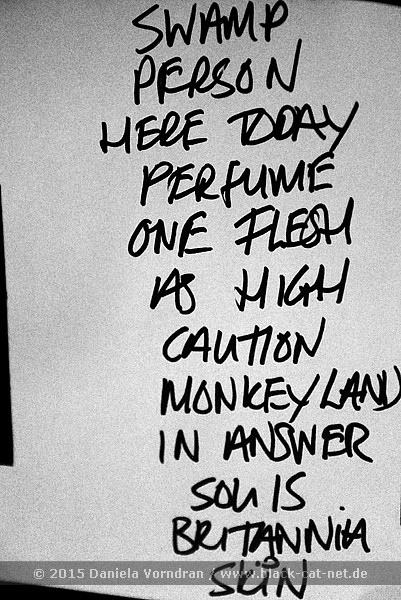 SWAMP
PERSON
HERE TODAY
PERFUME
ONE FLESH
AS HIGH
CAUTION
MONKEYLAND
IN ANSWER
SOU IS.
BRITANNIA
SKIN
© 2015 Daniela Vorndran / www.black-cat-net.de